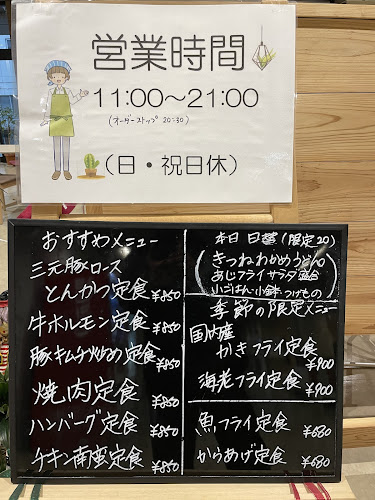 営業時間
11:00～21:00
(オーダーストップ 20:30)
(日・祝日休)
おすすめメニュー
三元豚ロース
とんかつ定食 ¥850
牛ホルモン定食 ¥850
豚キムチ炒め定食 ¥850
焼肉定食 ¥850
ハンバーグ定食 ¥850
チキン南蛮定食 ¥850
本日 日替(限定20)
きつねわかめうどん
あじフライサラダ盛合
小ごはん・小鉢・つけもの
季節の限定メニュー
国内産
かきフライ定食
¥900
海老フライ定食
¥900
魚フライ定食
¥680
からあげ定食
¥680